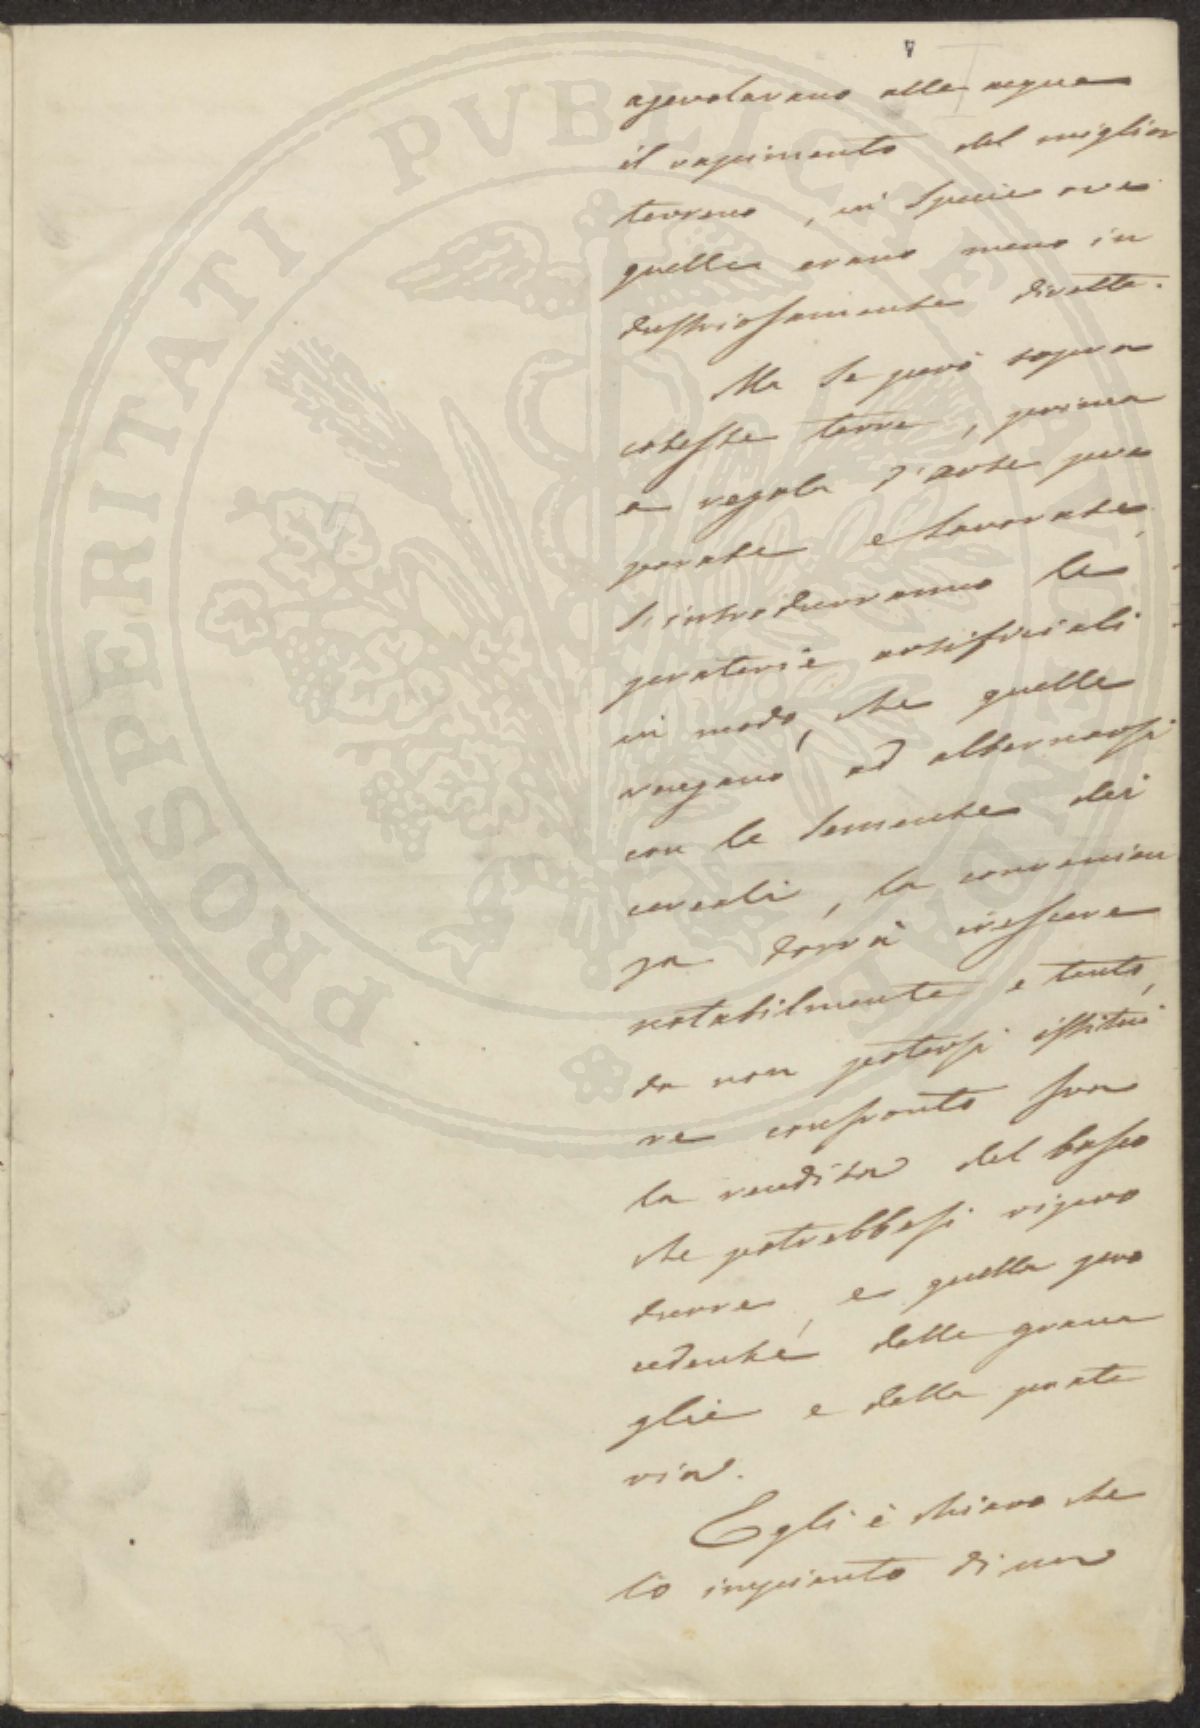 agevolavano alle acque
il rapimento del miglior
terreno, in specie ove
quelle erano meno in
dustriosamente dirette.
Ma se però sopra
coteste terre, prima
a regola d'arte pre
parate e lavorate,
s'introdurranno le
praterie artificiali
in modo, che quelle
vengano ad alternarsi
con le semente dei
cereali, la convenien
za dovrà crescere
notabilmente e tanto,
da non potersi istitui
re confronto fra
la rendita del bosco
che potrebbesi ripro
durre, e quella pro
cedente dalle grana
glie e dalla prate
ria.
Egli è chiaro che
lo impianto di una
PROSPERITATI PVBLICAE AVGENDAE